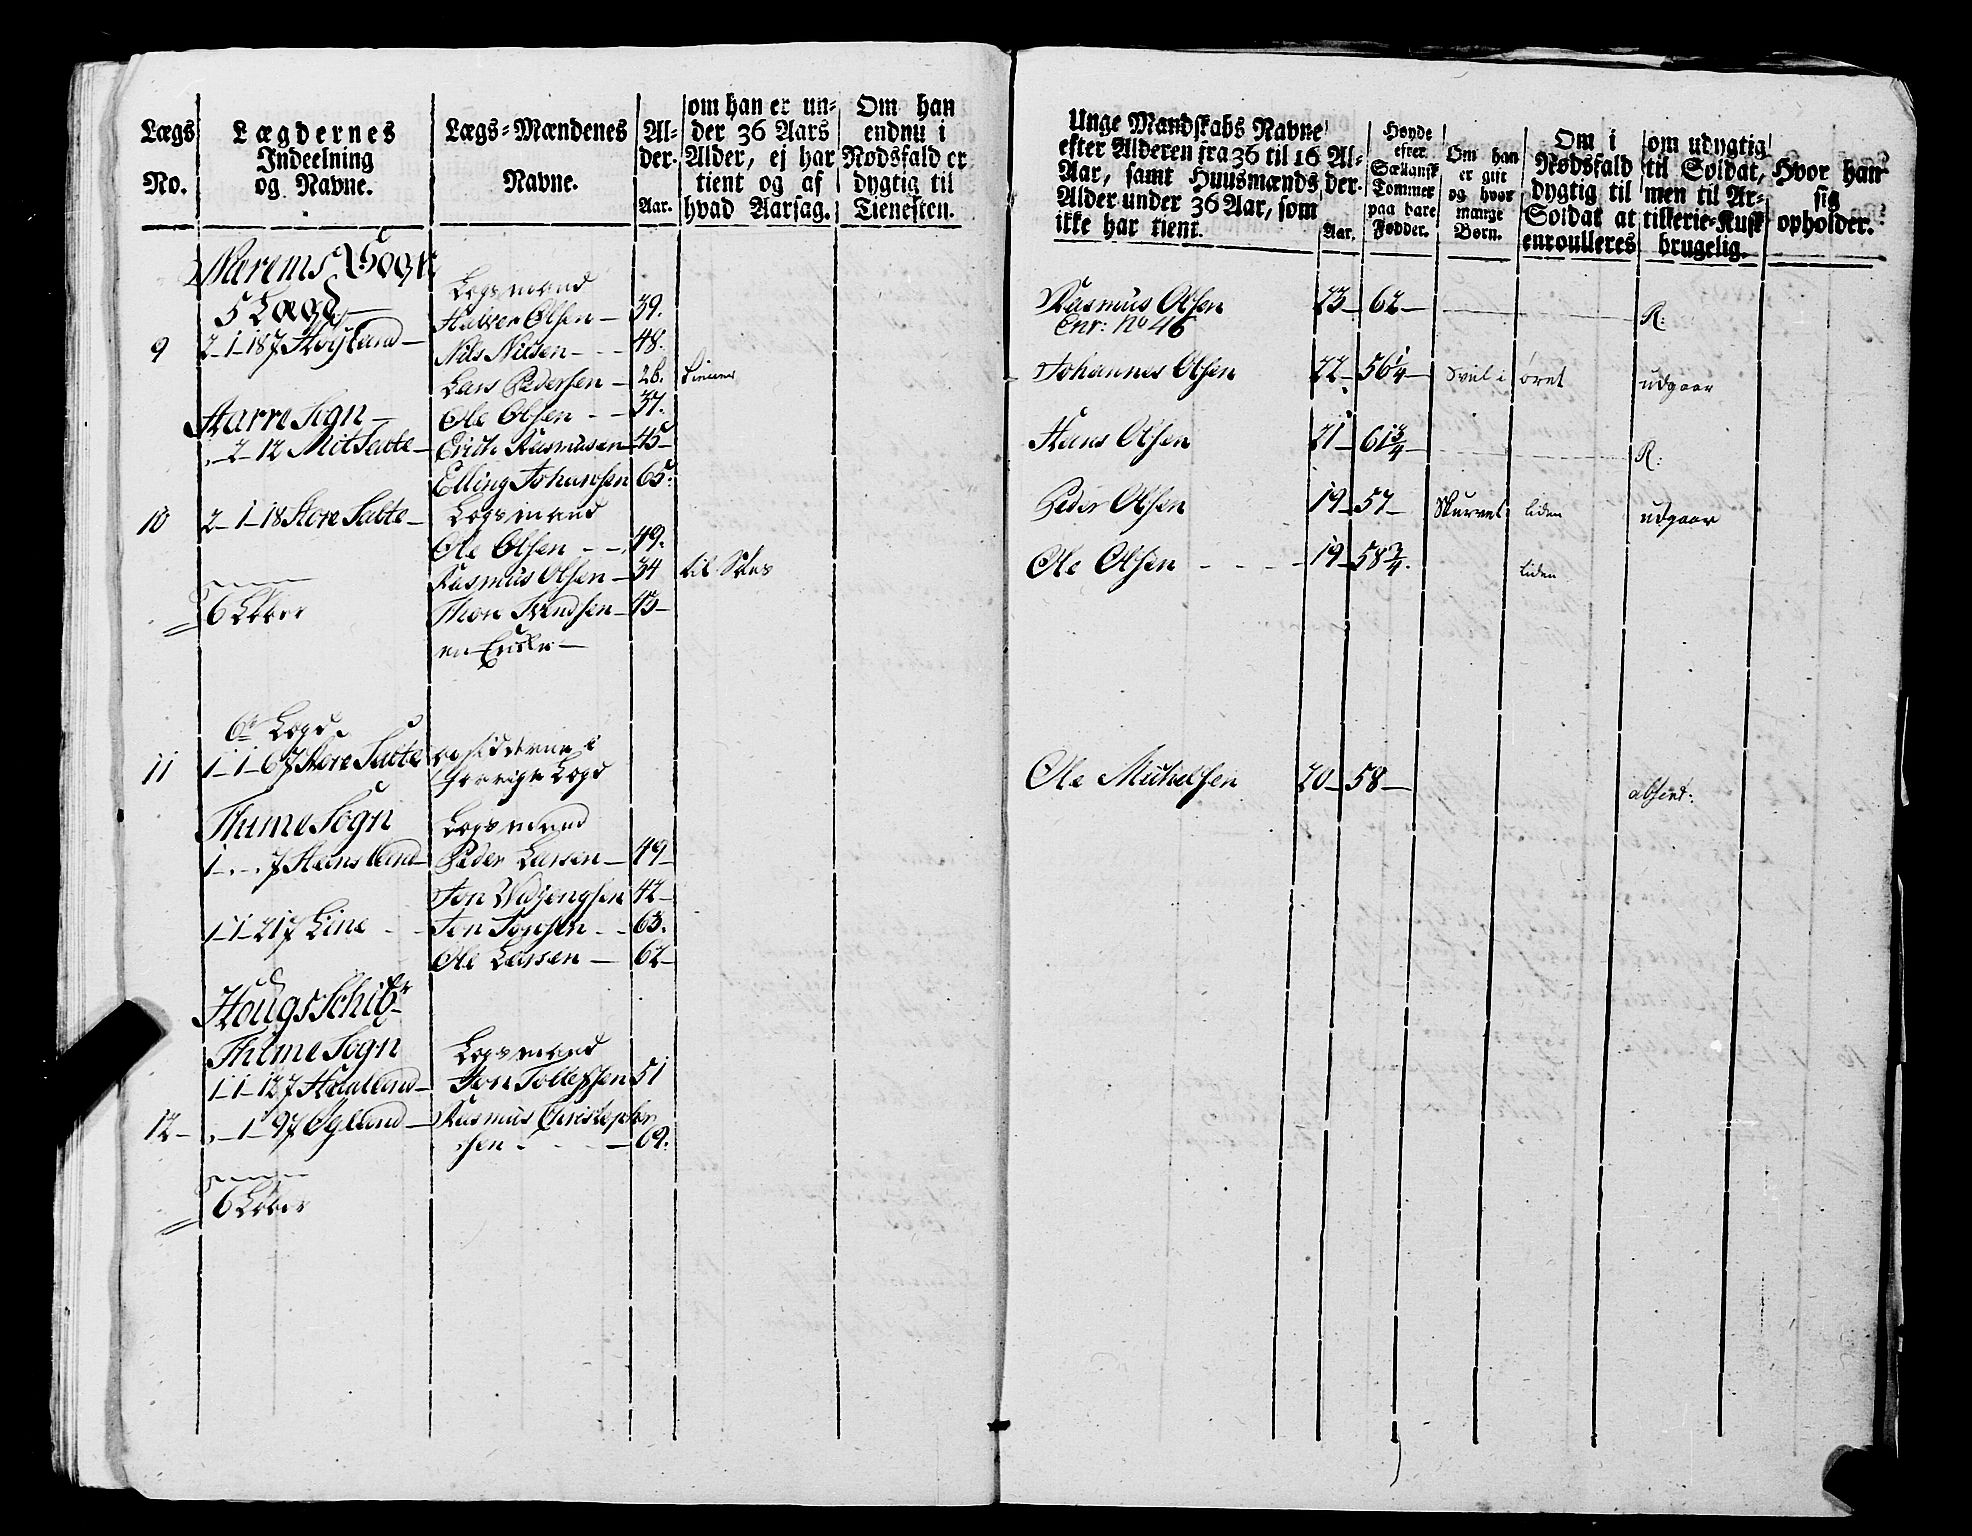 Lægs
No.
Lægdernes
Indeelning
og Navne.
Lægs-Mændenes
Navne.
Al-
der.
Aar.
om han er un-
der 36 Aars
Alder, ej har
tient og af
hvad Aarsag.
Om han
endnu i
Nødsfald er
dygtig til
Tienesten.
Nærems Sogn
5 Lægd
9
2-1-187 Høyland
Lægsmand
Halver Olsen 39.
Nils Nilsen 48.
Lars Pedersen 28. tiener
Aarre Sogn
Ole Olsen 37.
2-12 Mit Salte
Erich Rasmusen 45
Elling Johansen 65
10
2-1-18 Store Salte
Lægsmand
Ole Olsen 49.
Rasmus Olsen 34 til Søes
6 Løber
Thore Svendsen 43
en Enche
6te Lægd
11
1-1-67 Store Salte
opsidderne i
forrige Lægd
Thime Sogn
Lægsmand
1 7 Hæinsland
Peder Larsen 49
Jon 42
1-1-217 Line
Jon Jonsen 63.
Ole Larsen 62
Hougs Schibr
Thime Sogn
Lægsmand
1-1-127 Haaland
Jon Tollefsen 51
12
1-97 Øgland
Rasmus Christophor
sen 69.
6 Løber
Unge Mandskabs Navne
efter Alderen fra 36 til 16
Aar, samt Huusmænds
Alder under 36 Aar, som
ikke har tient.
Al-
der.
Aar.
Høyde
efter
Siællansk
Tommer
paa bare
Fødder.
Om han
er gift
og hvor
mange
Børn.
Om i
Nødsfald
dygtig til
Soldat at
enroulleres
om udygtig
til Soldat,
men til Ar-
tillerie-Kusk
brugelig.
Hvor han
sig
opholder.
Rasmus Olsen 23 62 R:
Enr: No 46
Johannes Olsen 22 56 1/4 Sviel i øret udgaar
Hans Olsen 21 61 3/4 R:
Peder Olsen 19 57 Skurvet liden udgaar
Ole Olsen 19 58 3/4. liden
Ole Michelsen 20 58 absent: